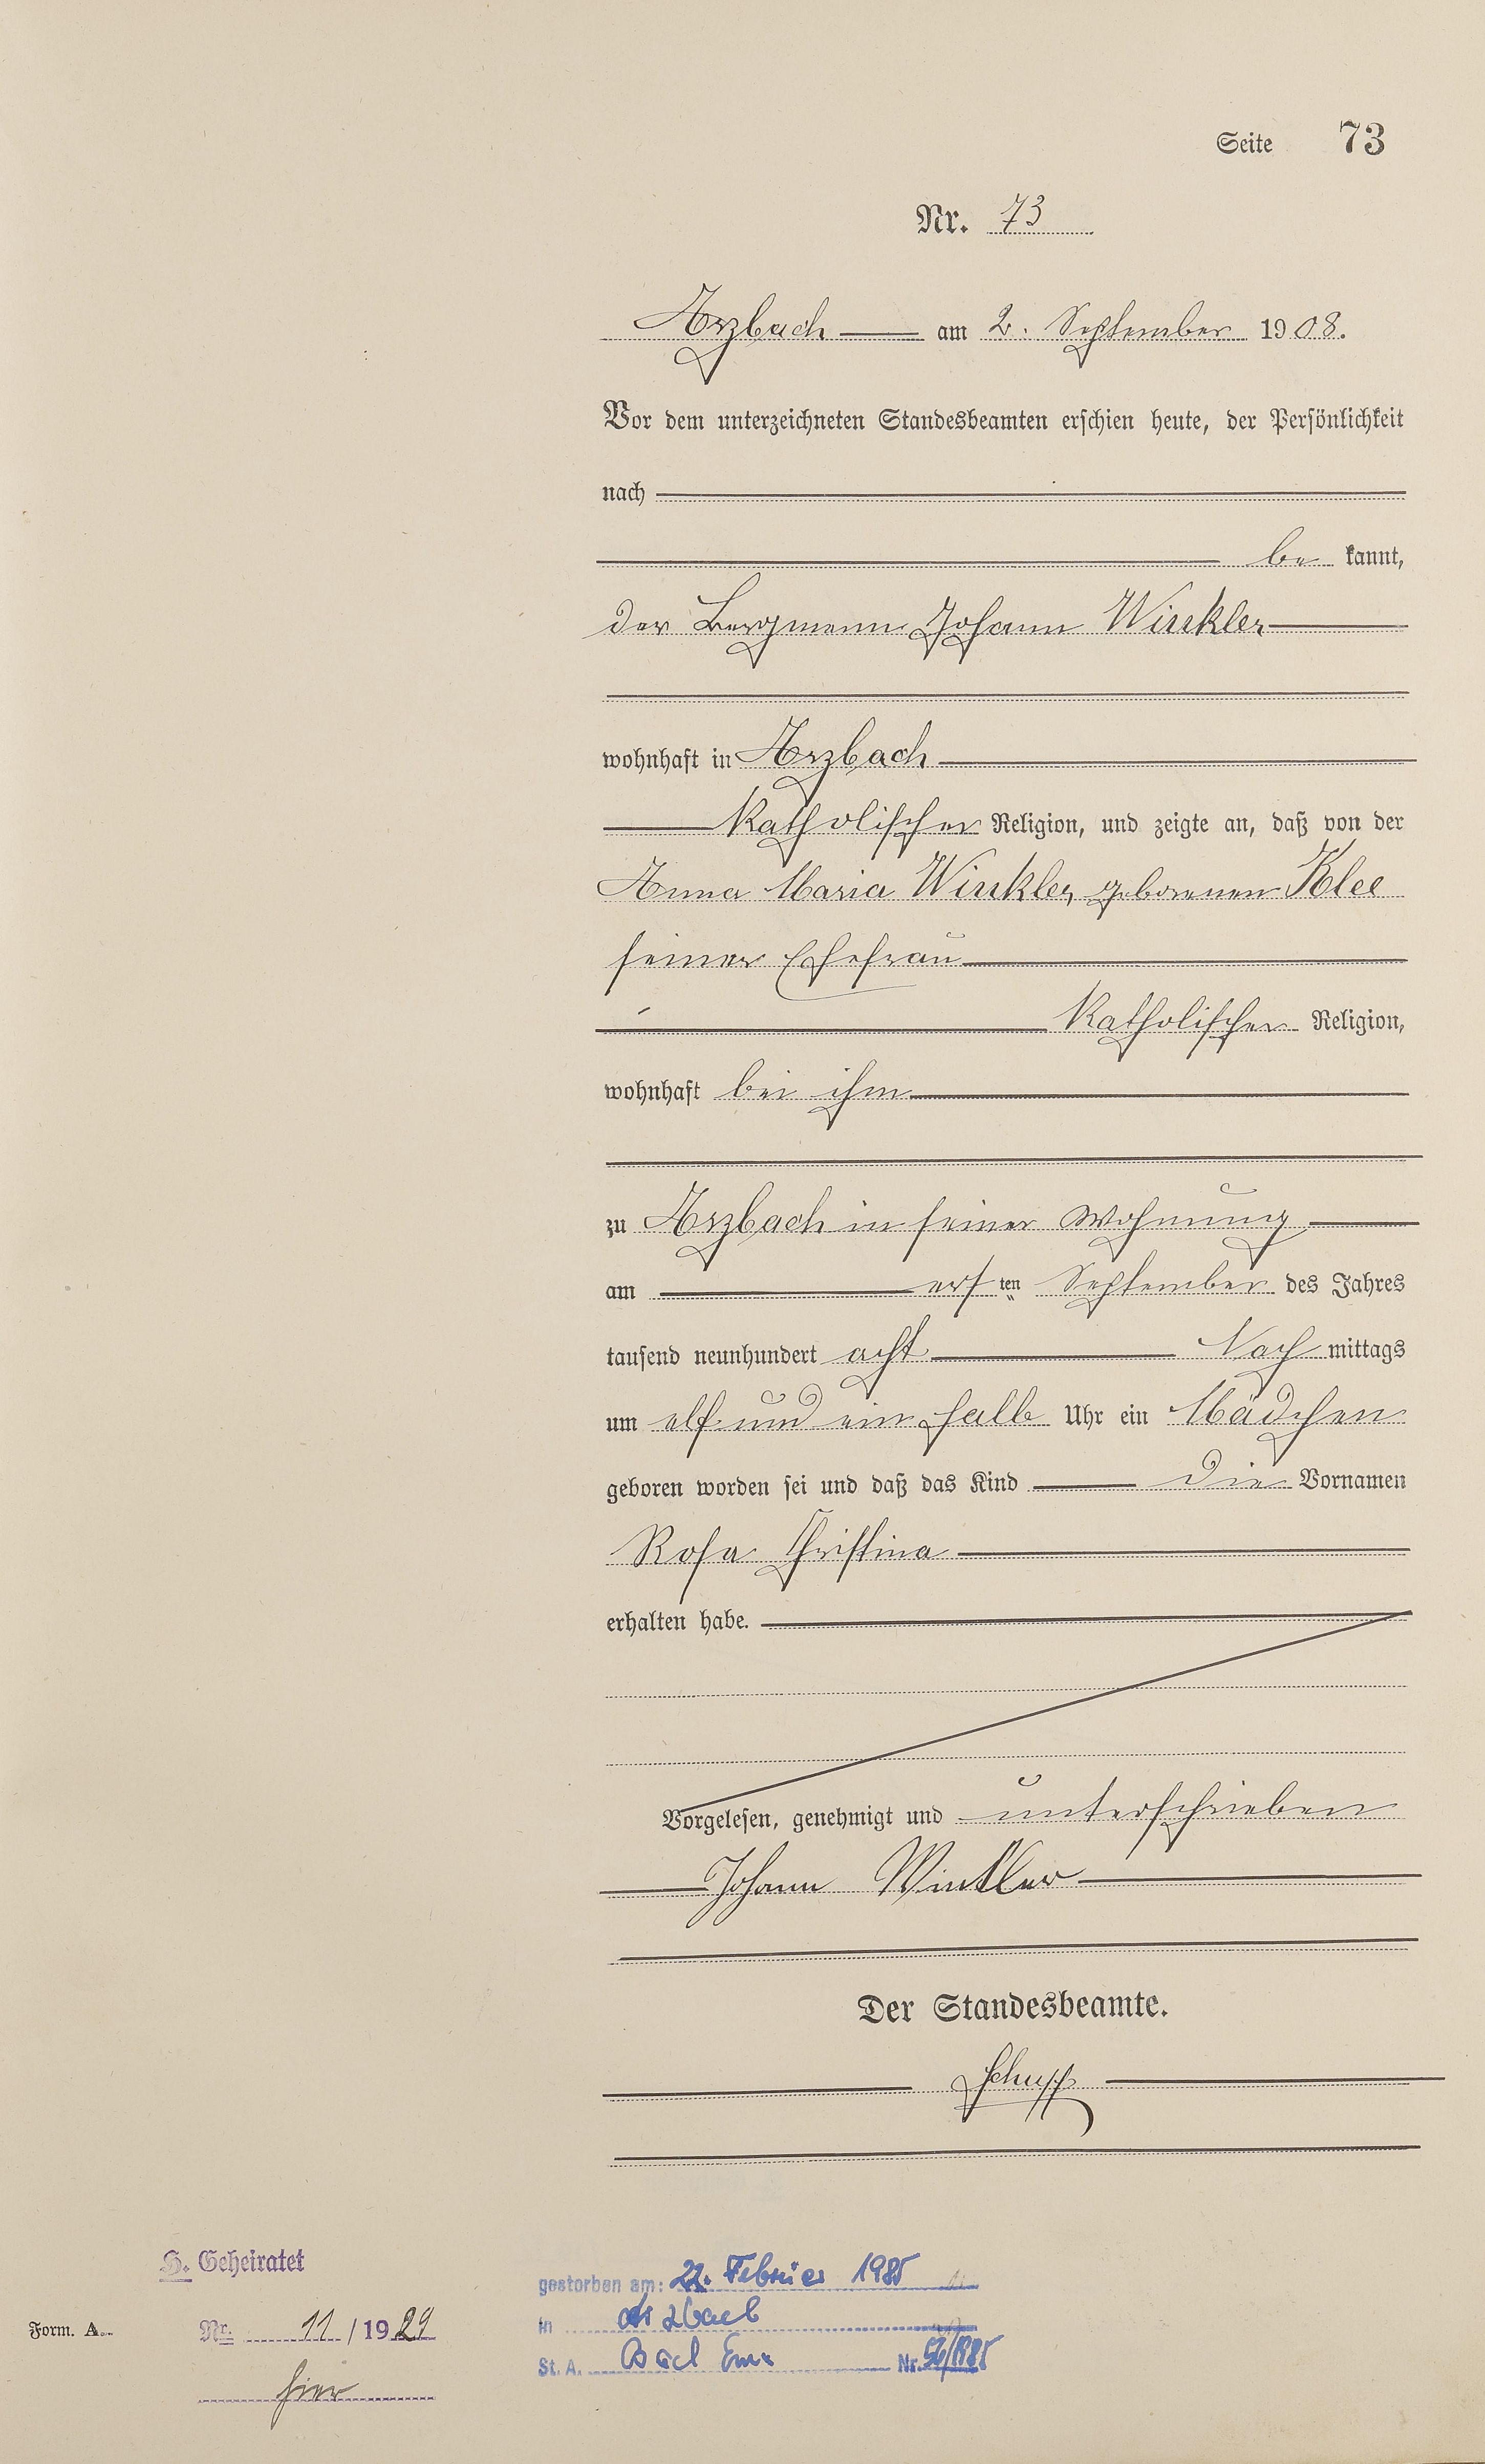 Seite 73
Nr. 73
Arzbach am 2. September 1908.
Vor dem unterzeichneten Standesbeamten erschien heute, der Persönlichkeit
nach
be kannt,
der Bergmann Johann Winkler
wohnhaft in Arzbach
katholischer Religion, und zeigte an, daß von der
Anna Maria Winkler, geborenen Klee
seiner Ehefrau
katholischer Religion,
wohnhaft bei ihm
zu Arzbach in seiner Wohnung
am ersten September des Jahres
tausend neunhundert acht Nach mittags
um elf und ein halb Uhr ein Mädchen
geboren worden sei und daß das Kind die Vornamen
Rosa Christina
erhalten habe.
Vorgelesen, genehmigt und unterschrieben
Johann Winkler
Der Standesbeamte.
Schupp
H. Geheiratet
Nr. 11/1929
hier
Form. A.
gestorben am: 22. Februar 1985
in Arzbach
St. A. Bad Ems Nr. 56/1985